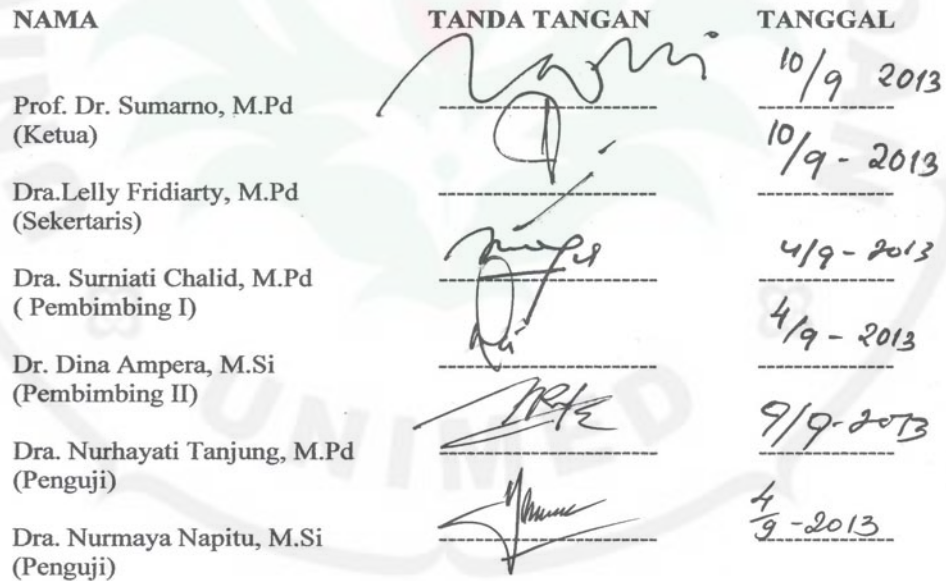 NAMA TANDA TANGAN TANGGAL
10/9 2013
Prof. Dr. Sumarno, M.Pd
(Ketua)
10/9 - 2013
Dra.Lelly Fridiarty, M.Pd
(Sekertaris)
4/9 - 2013
Dra. Surniati Chalid, M.Pd
( Pembimbing I)
4/9 - 2013
Dr. Dina Ampera, M.Si
(Pembimbing II)
9/9-2013
Dra. Nurhayati Tanjung, M.Pd
(Penguji)
4/9 -2013
Dra. Nurmaya Napitu, M.Si
(Penguji)
UNIMED